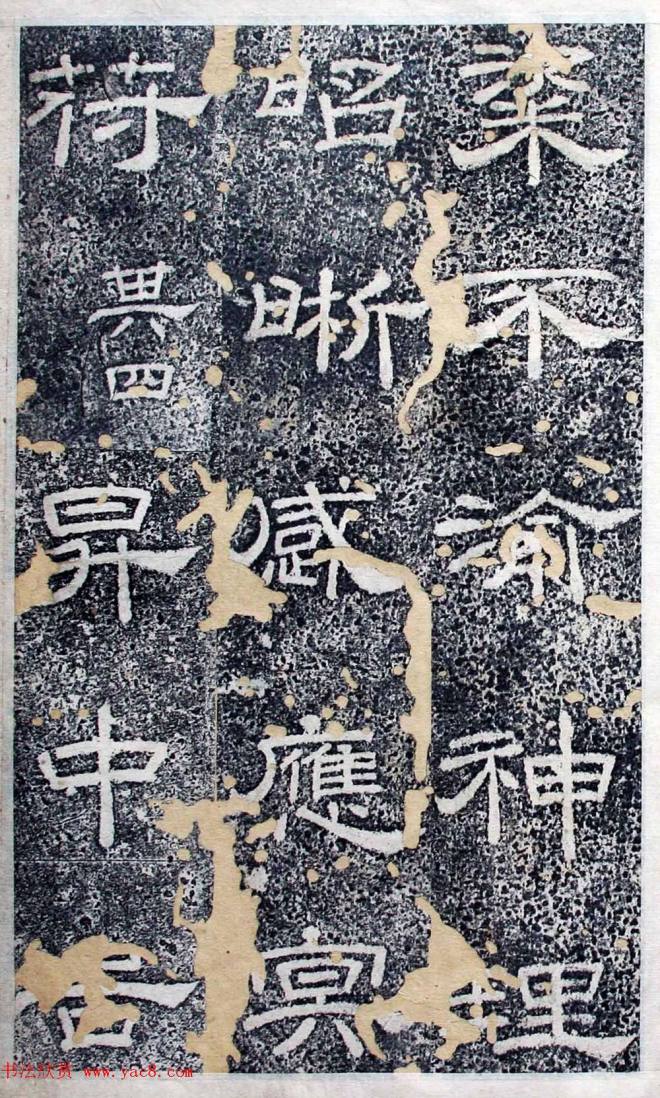 染不渝神理
昭晰感應冥
符其四昇中告
书法欣赏 www.yac8.com